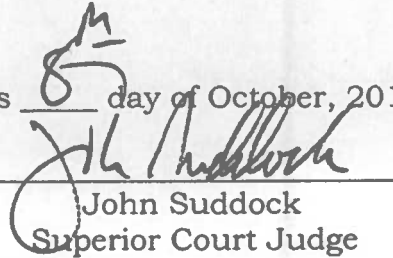 s 8th day of October, 201
John Suddock
John Suddock
Superior Court Judge